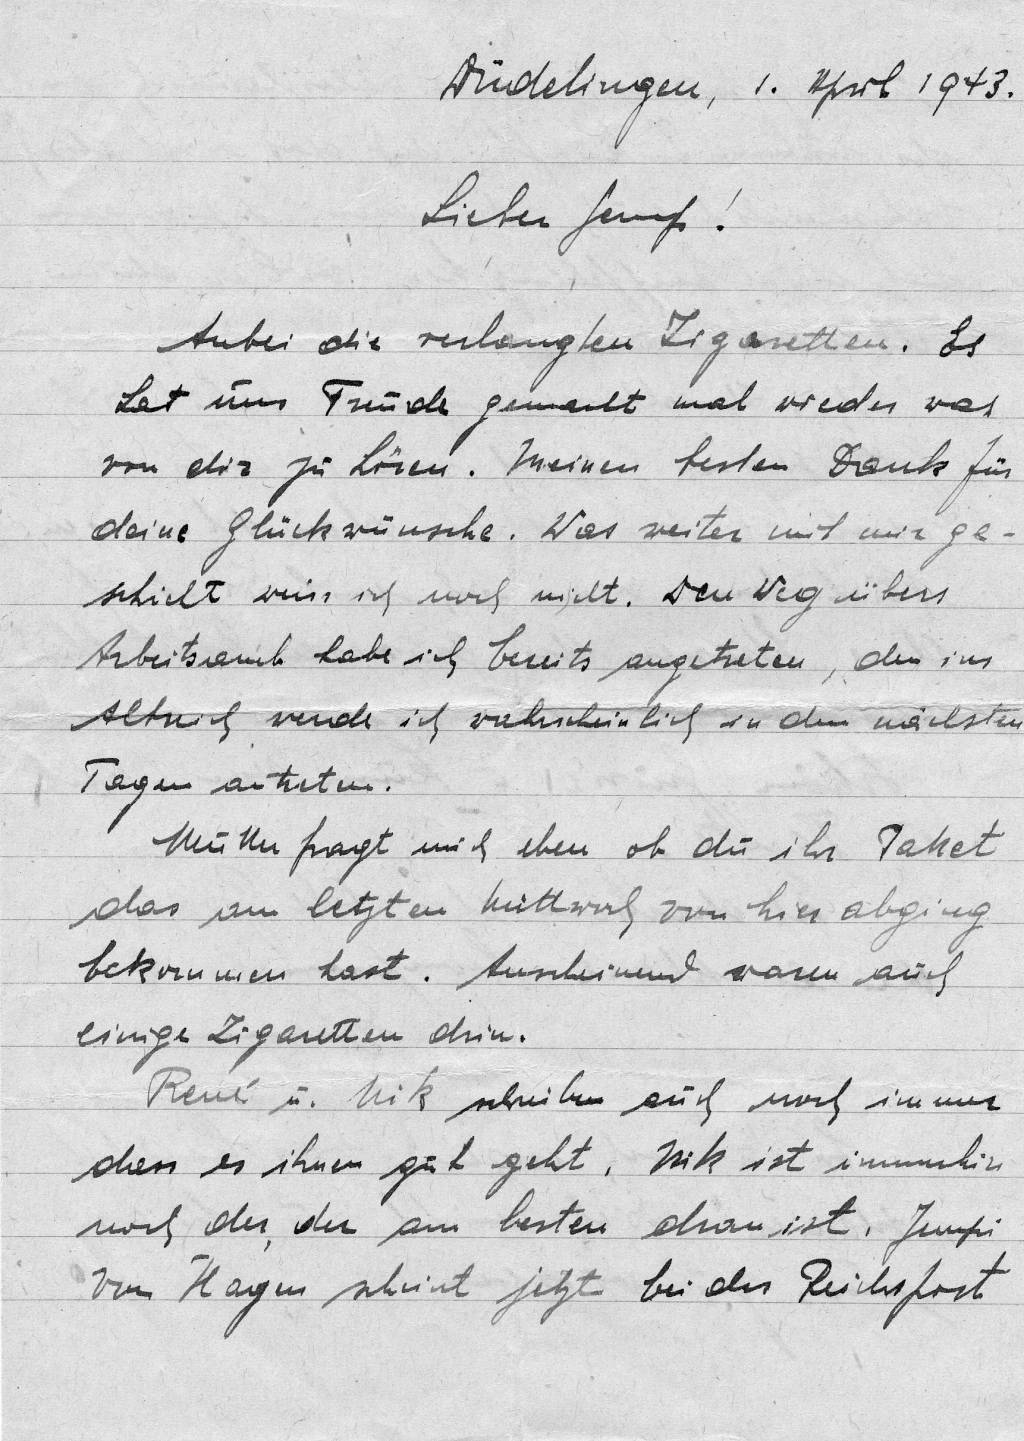 Düdelingen, 1. April 1943.
Lieber Jemp!
Anbei die verlangten Zigaretten. Es
hat uns Freude gemacht mal wieder was
von dir zu hören. Meinen besten Dank für
deine Glückwünsche. Was weiter mit mir ge-
schieht weiss ich noch nicht. Den Weg übers
Arbeitsamt habe ich bereits angetreten, den ins
Altreich werde ich wahrscheinlich in den nächsten
Tagen antreten.
Mutter fragt mich eben ob du ihr Paket
das am letzten Mittwoch von hier abging
bekommen hast. Anscheinend waren auch
einige Zigaretten drin.
René u. Nik schreiben auch noch immer
dass es ihnen gut geht. Nik ist immerhin
noch der, der am besten dran ist. Jempi
von Hagen scheint jetzt bei der Reichspost